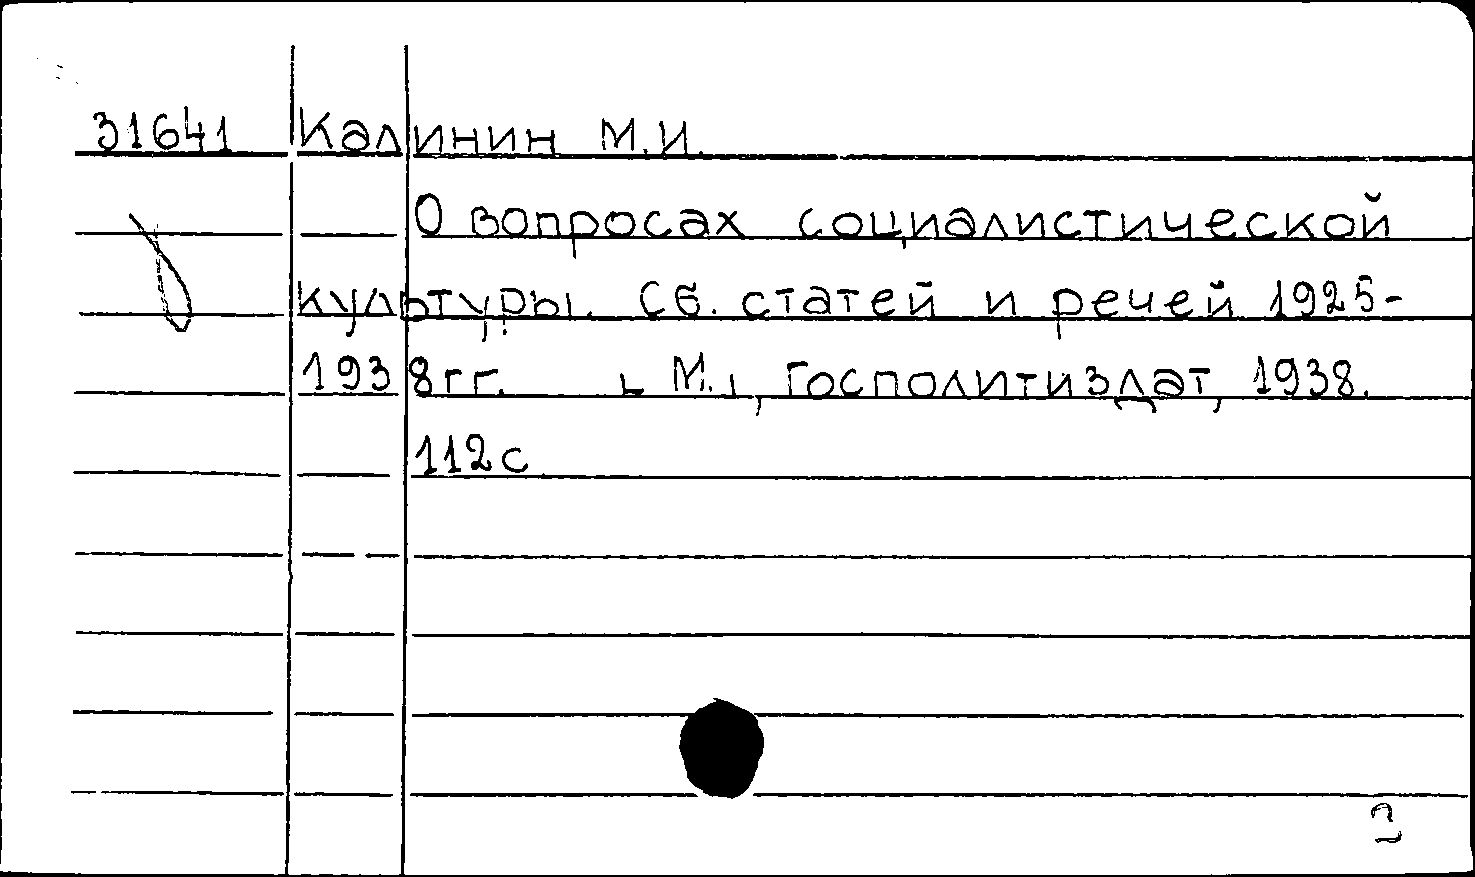 31641 Калинин М.И.
О вопросах социалистической
культуры. Сб. статей и речей 1925-
1938гг. ⌞М.⌟, Госполитиздат, 1938.
112с